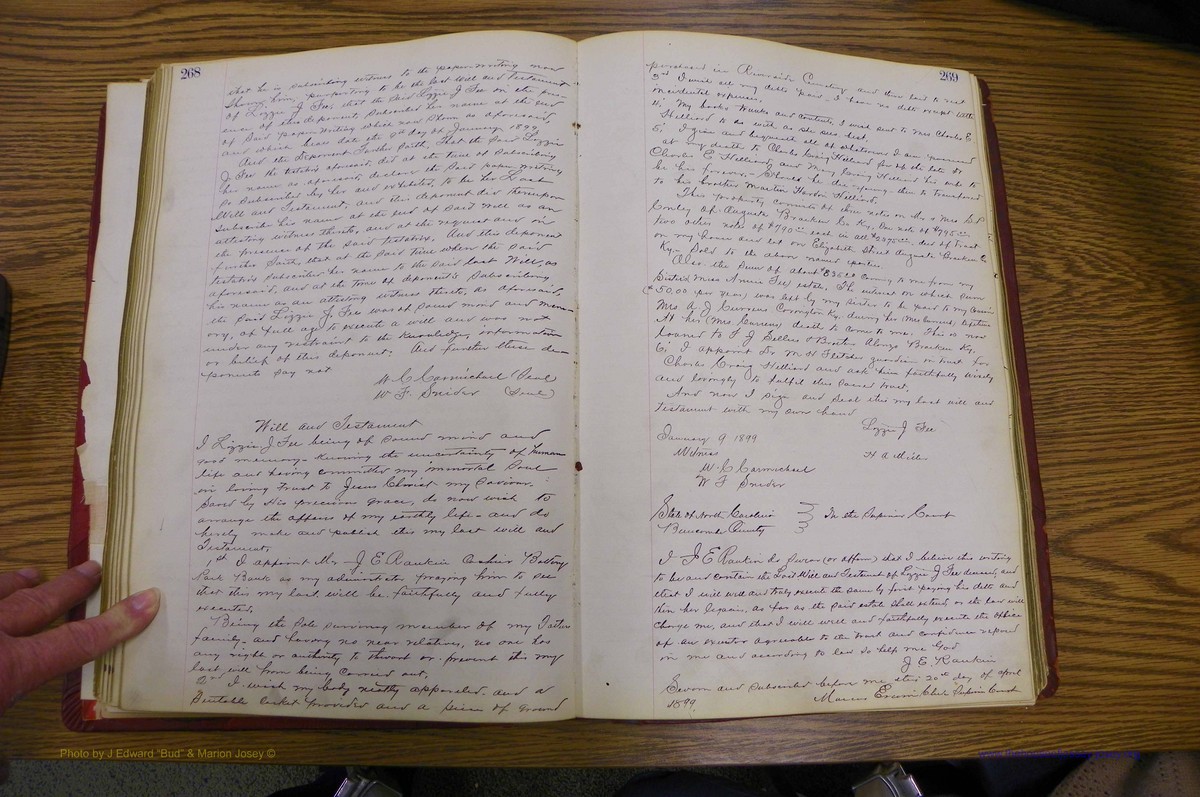 268
that he is subscribing witness to the paper-writing now
shown him, purporting to be the last Will and Testament
of Lizzie J Fee, that the said Lizzie J Fee in the pres-
ence of this deponent subscribed her name at the end
of said paper-writing which now shown as aforesaid
and which bears date the 9th day of January 1899
And the deponent further saith, That the said Lizzie
J Fee the testatrix aforesaid, did at the time of subscribing
her name as aforesaid, declare the said paper writing
so subscribed by her and exhibited, to be her Last
Will and Testament, and this deponent did thereupon
subscribe his name at the end of said Will as an
attesting witness thereto, and at the request and in
the presence of the said testatrix. And this deponent
further saith, that at the said time when the said
testatrix subscribed her name to the said last Will, as
aforesaid, and at the time of deponent's subscribing
his name as an attesting witness thereto, as aforesaid
the said Lizzie J Fee was of sound mind and mem-
ory, of full age to execute a will and was not
under any restraint to the knowledge, information
or belief of this deponent. And further these de-
ponents say not
W C Carmichael (Seal)
W F Snider (Seal)
Will and Testament
I Lizzie J Fee being of sound mind and
good memory - knowing the uncertainty of human
life and having committed my immortal Soul
in loving trust to Jesus Christ my Saviour,
saved by His precious grace, do now wish to
arrange the affairs of my earthly life - and do
hereby make and publish this my last will and
Testament.
1st I appoint Mr J E Rankin Cashier Battery
Park Bank as my administrator praying him to see
that this my last will be faithfully and fully
executed.
Being the sole surviving member of my Father
family - and having no near relatives, no one has
any right or authority to thwart or prevent this my
last will from being carried out.
2nd I wish my body neatly apparaled, and a
suitable casket provided and a piece of ground
269
purchased in Riverside Cemetery and then laid to rest
3rd I wish all my debts paid, I have no debts except little
incidental expenses.
4; My books trunks and contents, I wish sent to Mrs Charles E
Hilliard to do with as she sees best.
5; I give and bequeath all of whatever I am possessed
at my death to Charles Craig Hilliard son of the late Dr
Charles E Hilliard and Mary Craig Hilliard his wife to
be his forever, - Should he die young - then to transferred
to his brother Martin Hardin Hilliard.
This property consists of three notes on Mr & Mrs S P
Conley of Augusta Bracken Co Ky, One note of $795.00
two other notes of $790.00 each in all $2375.00, deed of trust
on my house and lot on Elizabeth Street Augusta Bracken Co
Ky. Sold to the above named parties.
Also the sum of about $836.00 coming to me from my
sister (Miss Annie Fee) estate, The interest on which sum
($50.00 per year) was left by my sister to be paid to my cousin
Mrs A. J Currens Covington Ky. during her (Mrs Currens) lifetime
At her (Mrs Currens) death to come to me. This is now
loaned to F J Sellers & Brother Alonzo Bracken Ky.
6; I appoint Dr M H Fletcher guardian in trust for
Charles Craig Hilliard and ask him faithfully wisely
and lovingly to fulfil this sacred trust.
And now I sign and seal this my last will and
Testament with my own hand
Lizzie J Fee
January 9 1899
Witness
H A Miller
W. C Carmichael
W F Snider
State of North Carolina
Buncombe County
In the Superior Court
I J E Rankin do swear (or affirm) that I believe this writing
to be and contain the Last Will and Testament of Lizzie J Fee deceased, and
that I will well and truly execute the same by first paying his debts and
then her legacies, as far as the said estate shall extend or the law will
charge me, and that I will well and faithfully execute the office
of an executor agreeable to the trust and confidence reposed
in me and according to law So help me God
J. E. Rankin
Sworn and subscribed before me this 20th day of April
1899.
Marcus Erwin Clerk Superior Court
Photo by J Edward "Bud" & Marion Josey ©